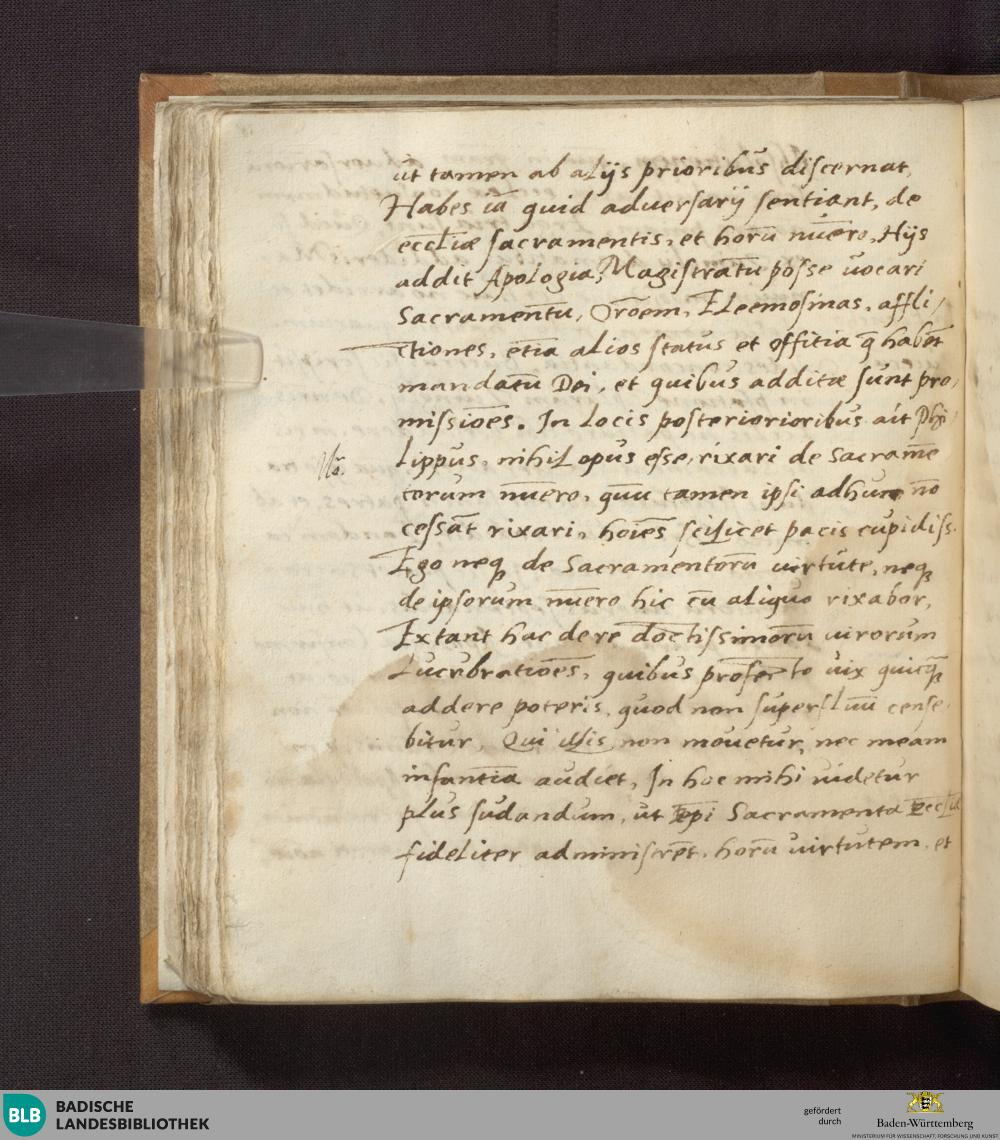 ut tamen ab alijs prioribus discernat,
Habes iā quid adversarij sentiant, de
eccl̄iæ sacramentis, et horū nūero, Hijs
addit Apologia, Magistratū posse vocari
Sacramentū, Orōem, Eleemosinas, affli/
ctiones, etiā alios status et offitia q̄ habēt
mandatū Dei, et quibus additæ sunt pro/
missiōes. In locis posteriorioribus ait Phi/
lippus, nihil opus esse, rixari de Sacramē
torum nūero, quū tamen ipsi adhuc nō
cessāt rixari, hoīes scilicet pacis cupidiss.
Ego neq̨ de Sacramentorū virtute, neq̨
de ipsorum nūero hic cū aliquo rixabor,
Extant hac de re doctissimorū virorum
Lucubratiōes, quibus profecto vix quicq̄
addere poteris, quod non superfluū cense/
bitur, Qui illis non movetur, nec meam
infantiā audiet, In hoc mihi videtur
plus sudandum, ut Ep̄i Sacramenta
fideliter administrēt, horū virtutem, et
No.
BLB
BADISCHE
LANDESBIBLIOTHEK
gefördert
durch
Baden-Württemberg
MINISTERIUM FÜR WISSENSCHAFT, FORSCHUNG UND KUNST